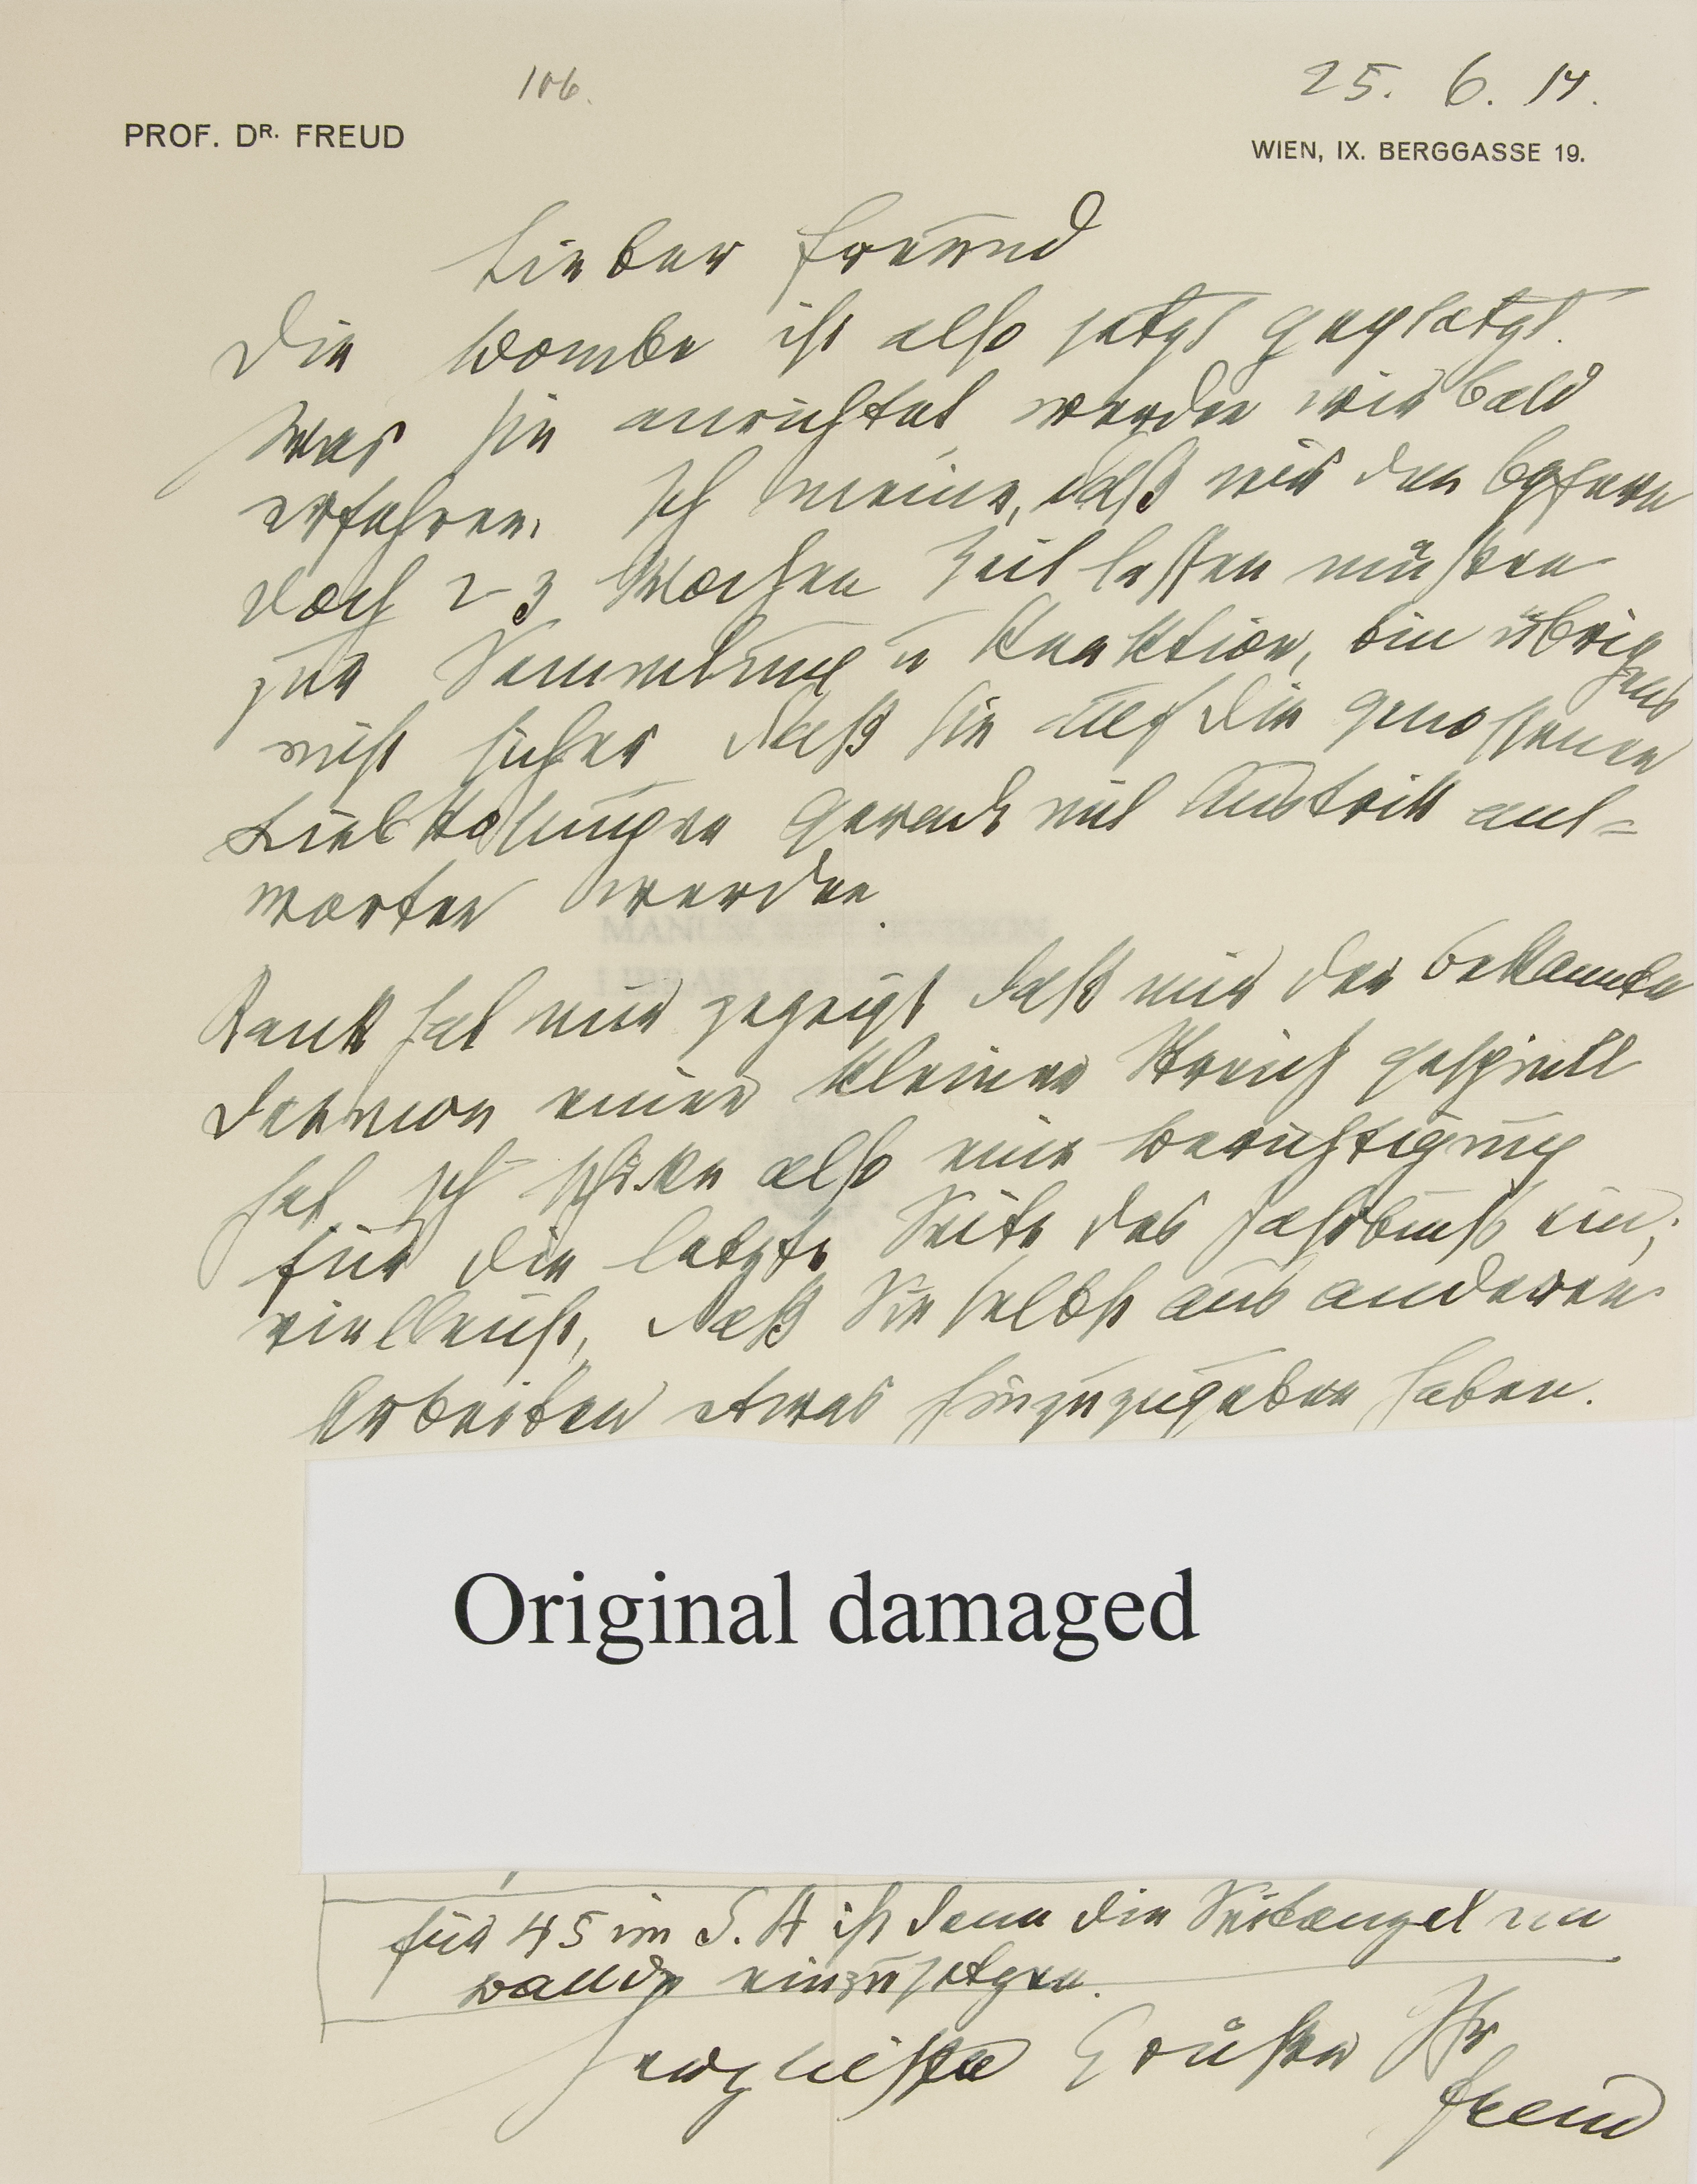 106.
25. 6. 14.
PROF. DR. FREUD
WIEN, IX. BERGGASSE 19.
Lieber Freund
Die Bombe ist also jetzt geplatzt.
Was sie anrichtet werden wir bald
erfahren. Ich meine, daß wir den Opfern
doch 2-3 Wochen Zeit lassen müssen
zur Sammlung u Reaktion, bin übrigens
nicht sicher daß sie auf die genossenen
Liebkosungen gerade mit Austritt ant-
worten werden.
MANUSCRIPT DIVISION
LIBRARY
Rank hat mir gezeigt daß mir der bekannte
Dämon einen kleinen Streich gespielt
hat. Ich schicke also eine Berichtigung
für die letzte Seite des Jahrbuchs ein;
vielleicht, daß Sie selbst aus anderen
Arbeiten etwas hinzuzugeben haben.
Original damaged
für 45 im S. A ist dann die Seitenzahl
einzusetzen.
Herzlichste Grüße Ihr
Freud